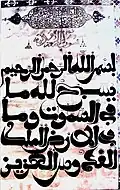 بسم الله الرحمن الرحيم
يسبح لله ما
في السموت وما
في الارض الملك
القدوس العزيز